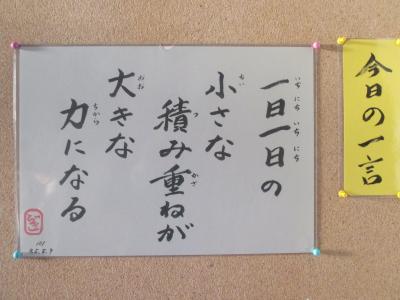 今日の一言
一日一日の
いちにちいちにち
小さな
ちい
積み重ねが
つかざ
大きな
おお
力になる
ちから